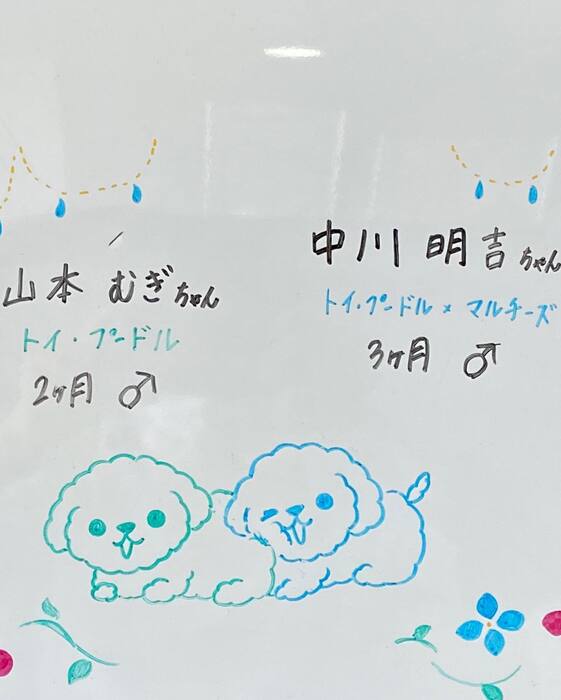 山本 むぎちゃん
トイ・プードル
2ヶ月 ♂
中川 明吉ちゃん
トイ・プードル × マルチーズ
3ヶ月 ♂